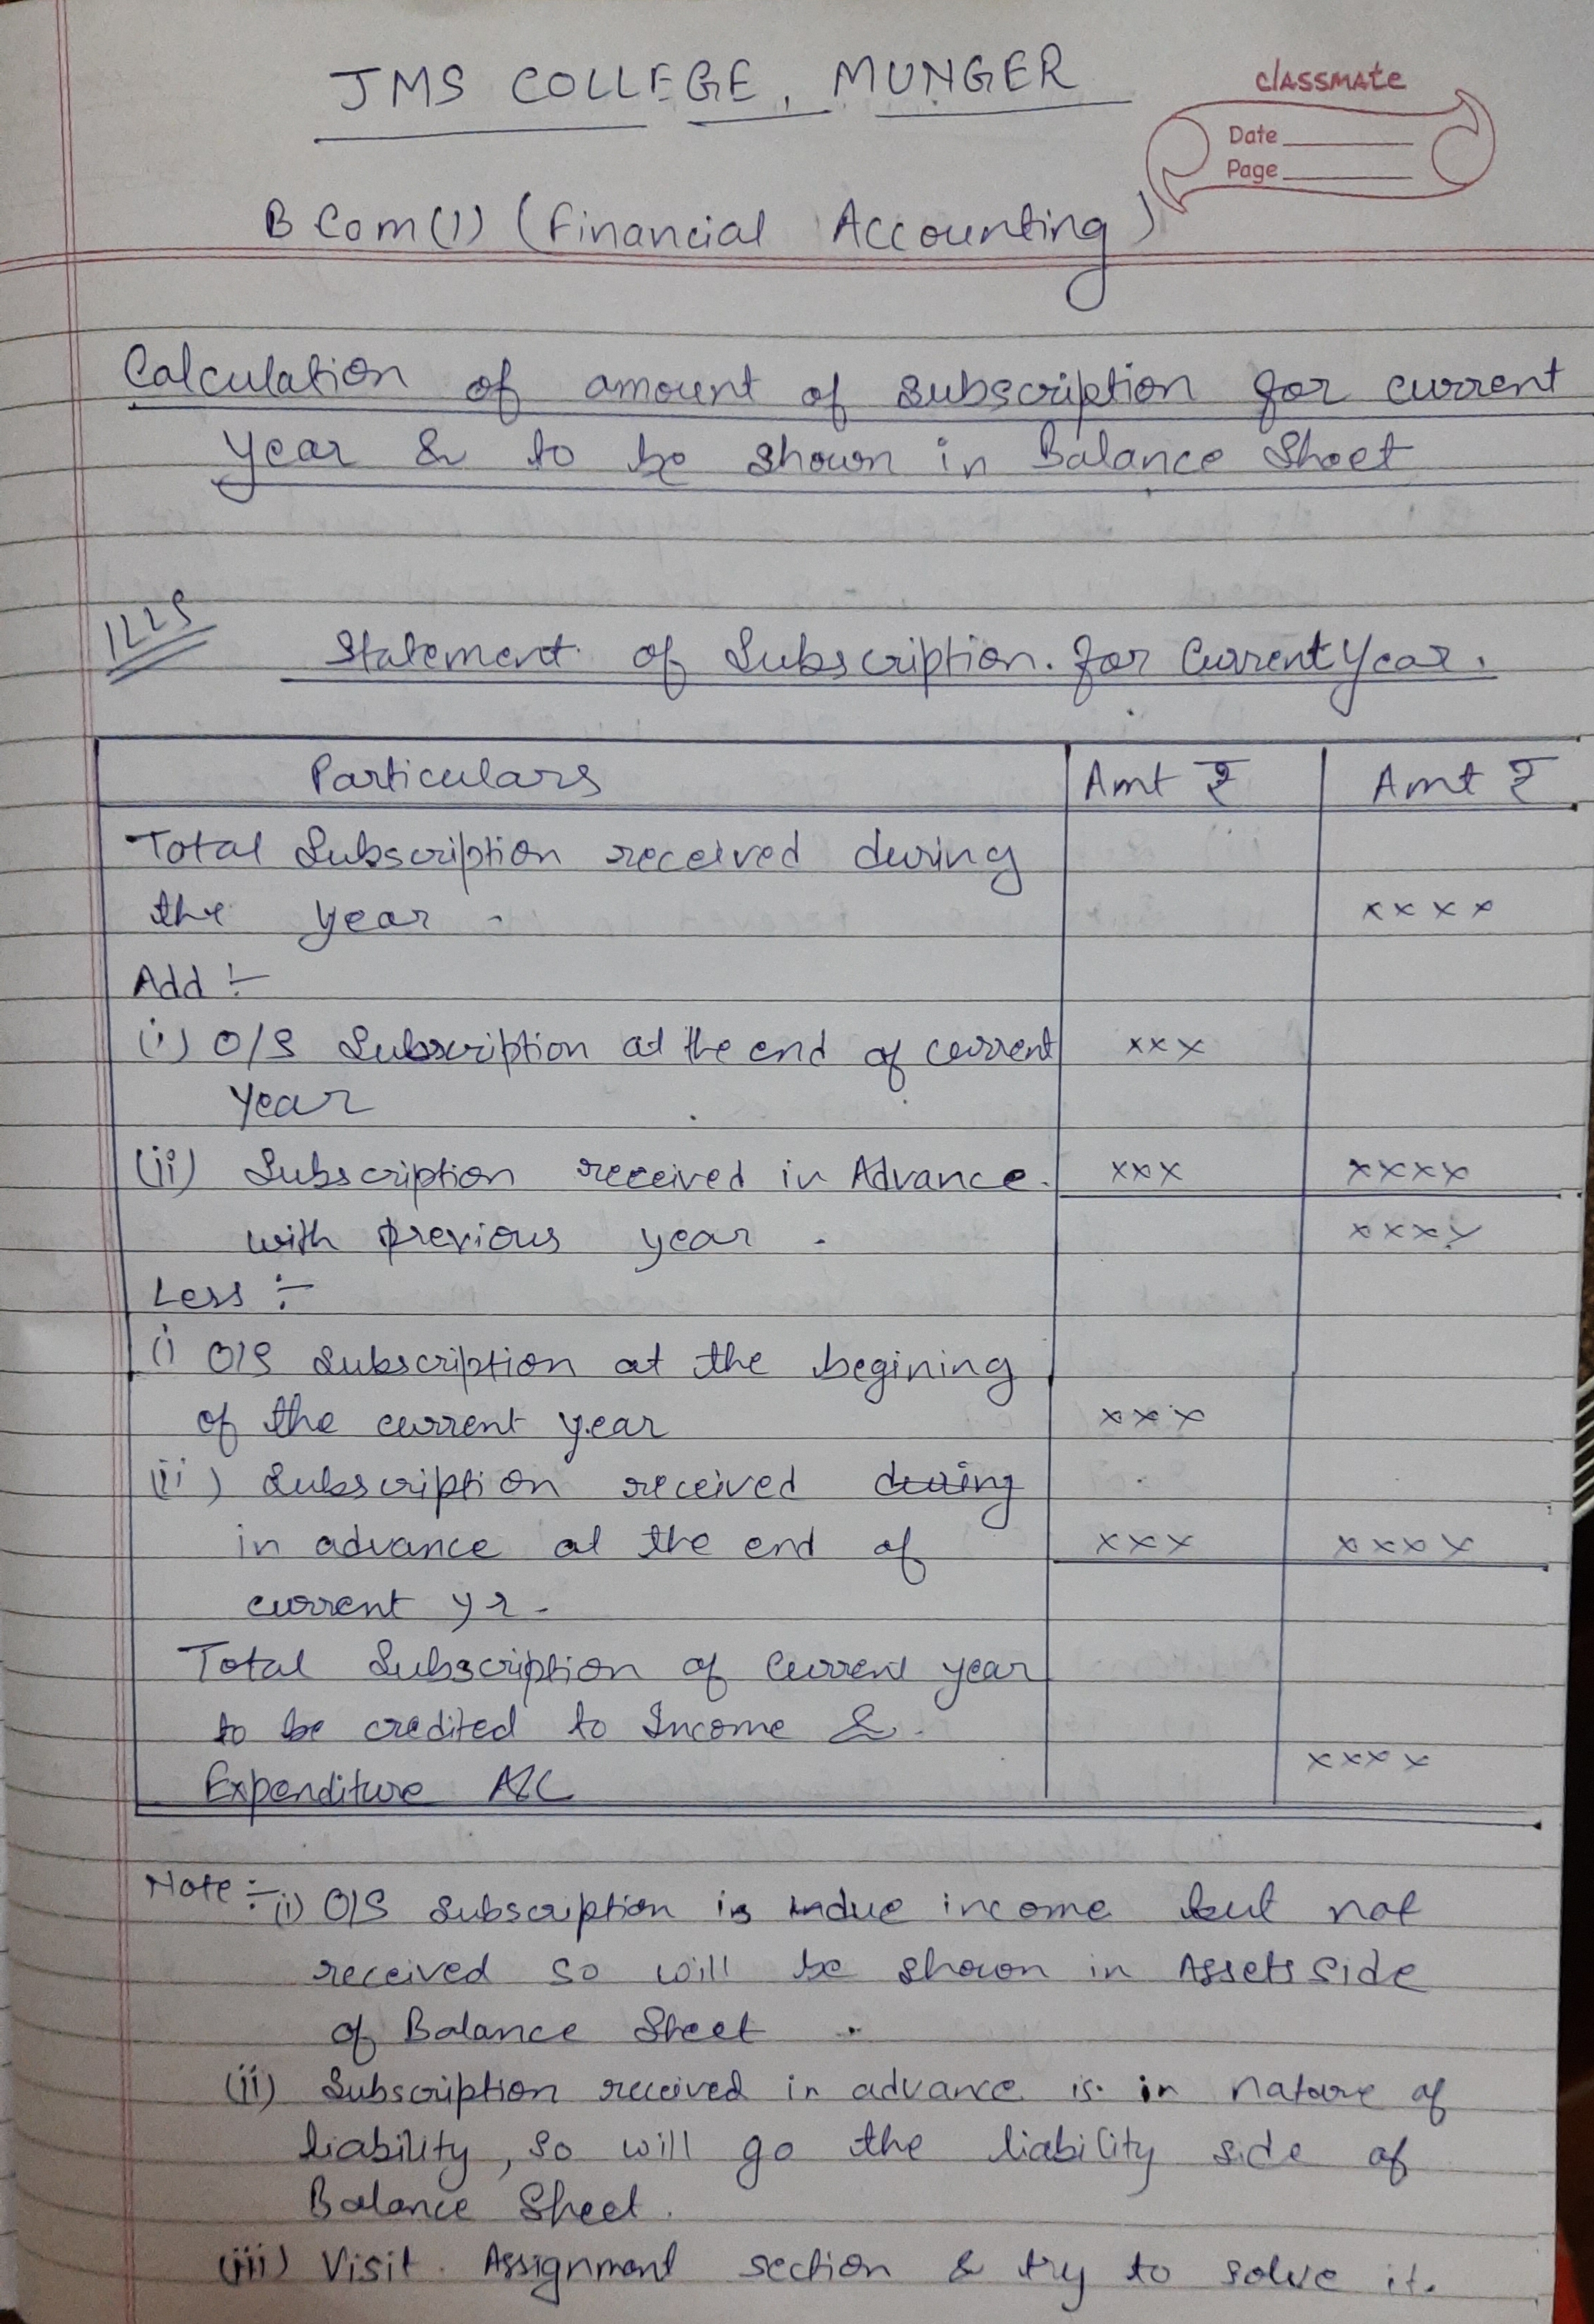 JMS COLLEGE, MUNGER
classmate
Date
Page
B Com(1) (Financial Accounting)
Calculation of amount of subscription for current
year & to be shown in Balance Sheet
Statement of Subscription. for Current Year.
Particulars Amt ₹ Amt ₹
Total Subscription received during
the year - xxxx
Add :-
(i) O/S Subscription at the end of current xxx
year
(ii) Subscription received in Advance. xxx xxxx
with previous year . xxxx
Less :-
(i) O/S Subscription at the begining
of the current year xxx
(ii) Subscription received during
in advance at the end of xxx xxxx
current yr.
Total Subscription of Current year
to be credited to Income &
Expenditure A/C xxxx
Note :- (i) O/S Subscription is due income but not
received so will be shown in Assets side
of Balance Sheet .
(ii) Subscription received in advance is in nature of
liability, so will go the liability side of
Balance Sheet.
(iii) Visit Assignment section & try to solve it.